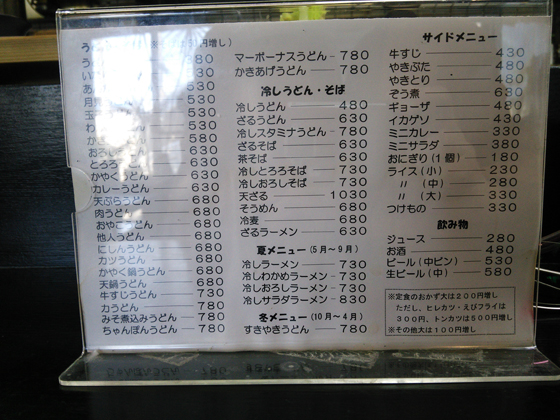 円増し）
380
530
530
530
530
530
580
630
とろろ 630
かやくうどん 630
カレーうどん 630
天ぷらうどん 680
肉うどん 680
おやこうどん 680
他人うどん 680
にしんうどん 680
カツうどん 680
かやく鍋うどん 680
天鍋うどん 680
牛すじうどん 730
力うどん 780
みそ煮込みうどん 780
ちゃんぽんうどん 780
マーボーナスうどん 780
かきあげうどん 780
冷しうどん・そば
冷しうどん 480
ざるうどん 630
冷しスタミナうどん 780
ざるそば 630
茶そば 630
冷しとろろそば 730
冷しおろしそば 730
天ざる 1030
そうめん 680
冷麦 680
ざるラーメン 630
夏メニュー（5月〜9月）
冷しラーメン 730
冷しわかめラーメン 730
冷しおろしラーメン 730
冷しサラダラーメン 830
冬メニュー（10月〜4月）
すきやきうどん 780
サイドメニュー
牛すじ 430
やきぶた 480
やきとり 480
ぞう煮 630
ギョーザ 480
イカゲソ 430
ミニカレー 330
ミニサラダ 380
おにぎり（1個） 180
ライス（小） 230
〃（中） 280
〃（大） 330
つけもの 330
飲み物
ジュース 280
お酒 480
ビール（中ビン） 530
生ビール（中） 580
※定食のおかず大は200円増し
ただし、ヒレカツ・えびフライは
300円、トンカツは500円増し
※その他大は100円増し